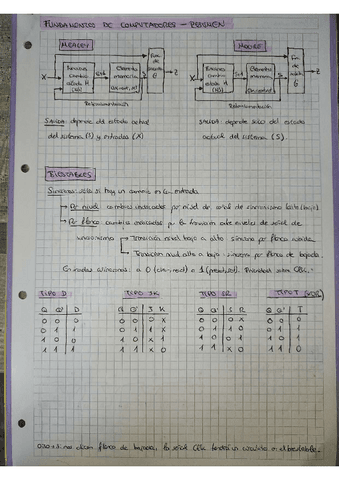 FUNDAMENTOS DE COMPUTADORES - RESUMEN
MEALEY
MOORE
X
Z
X
Z
Retroalimentación
Retroalimentación
SALIDA: depende del estado actual
del sistema (S) y entradas (X)
SALIDA: depende solo del estado
actual del sistema (S).
BIESTABLES
Síncronos: sólo si hay un cambio en la entrada
→ Por nivel: cambios indicados por nivel de señal de sincronismo
→ Por flanco: cambia indicados por la transición entre niveles de señal de
sincronismo
→ Transición nivel bajo a alto: síncrono por flanco subida
→ Transición nivel alto a bajo: síncrono por flanco de bajada.
Entradas asíncronas: a 0 (clr, reset) o 1 (preset, set). Prioridad sobre CLK.
TIPO D:
TIPO JK
TIPO SR
TIPO T (XOR)
Q Q' D
Q Q' J K
Q Q' S R
Q Q' T
0 0 0
0 0 0 X
0 0 0 X
0 0 0
0 1 1
0 1 1 X
0 1 1 0
0 1 1
1 0 0
1 0 X 1
1 0 0 1
1 0 1
1 1 1
1 1 X 0
1 1 X 0
1 1 0
flanco de bajada, la señal CLK tendrá un circulito en el biestable.